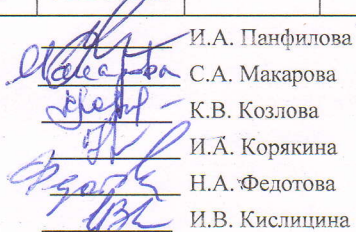 И.А. Панфилова
С.А. Макарова
К.В. Козлова
И.А. Корякина
Н.А. Федотова
И.В. Кислицина